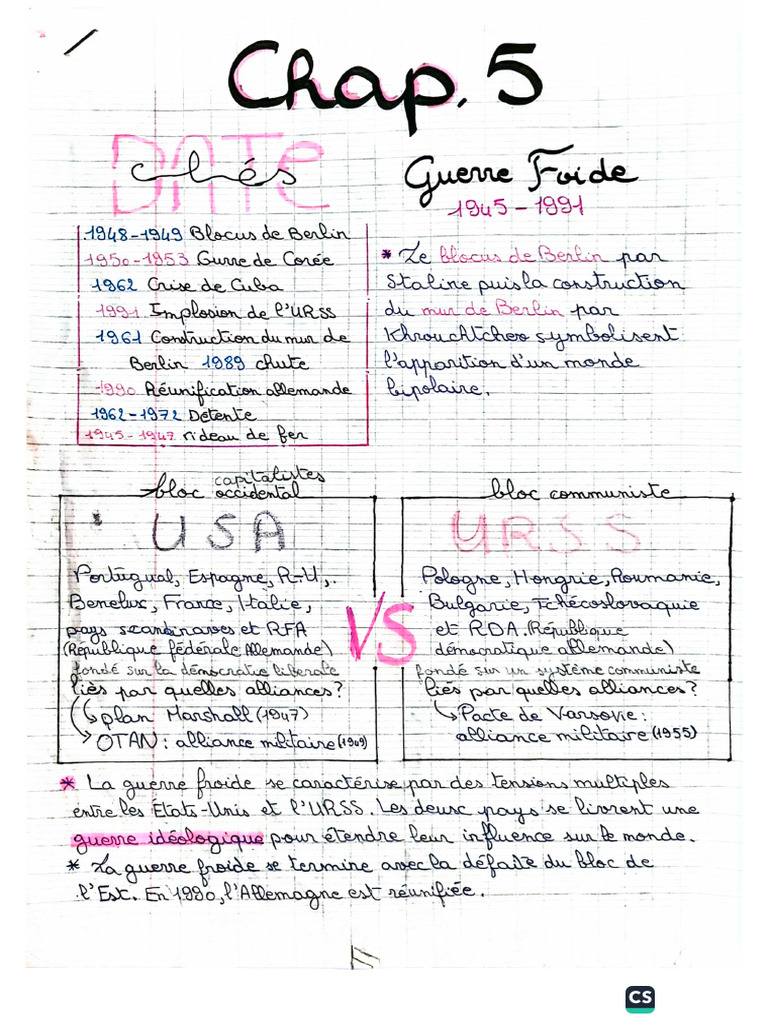 Chap. 5
DATE
clés
1948-1949 Blocus de Berlin
1950-1953 Gurre de Corée
1962 Crise de Cuba
1991 Implosion de l'URSS
1961 Construction du mur de
Berlin 1989 chute
1990 Réunification allemande
1962-1972 Détente
1945-1947 rideau de fer
Guerre Foide
1945-1991
* Le blocus de Berlin par
Staline puis la construction
du mur de Berlin par
Khrouchtchev symbolisent
l'apparition d'un monde
bipolaire.
capitalistes
bloc occidental
USA
Portugual, Espagne, R-U,.
Benelux, France, Italie,
pays scandinaves et RFA
(République fédérale Allemande)
fondé sur la démocratie liberale
liés par quelles alliances?
plan Marshall (1947)
OTAN : alliance militaire (1949)
VS
bloc communiste
URSS
Pologne, Hongrie, Roumanie,
Bulgarie, Tchécoslovaquie
et RDA. (République
démocratique allemande)
fondé sur un système communiste
liés par quelles alliances?
Pacte de Varsovie :
alliance militaire (1955)
* La guerre froide se caractérise par des tensions multiples
entre les États-Unis et l'URSS. Les deux pays se livrent une
guerre idéologique pour étendre leur influence sur le monde.
* La guerre froide se termine avec la défaite du bloc de
l'Est. En 1990, l'Allemagne est réunifiée.
CS